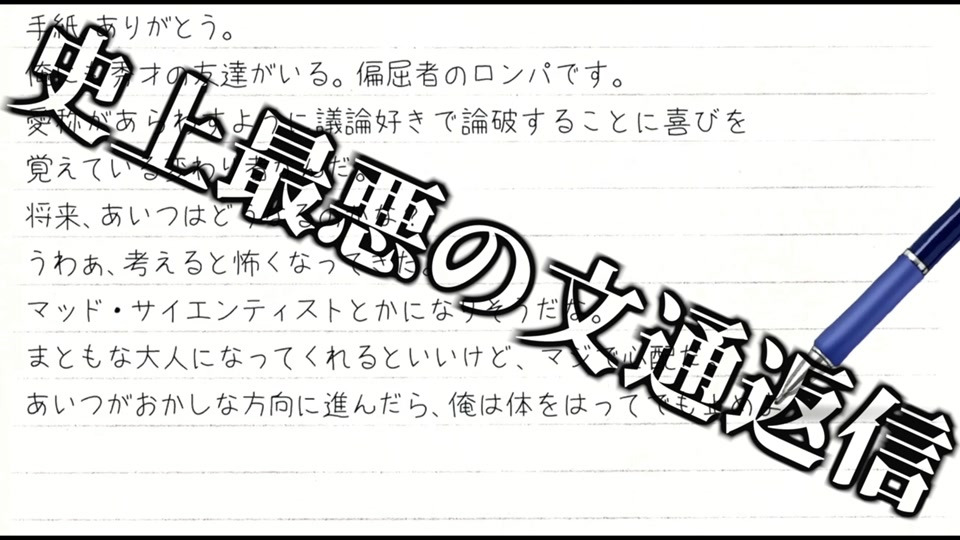 手紙、ありがとう。
俺にも秀才の友達がいる。偏屈者のロンパです。
愛称があらわすように議論好きで論破することに喜びを
覚えている変わり者なんだ。
将来、あいつはどうなるのかな？
うわぁ、考えると怖くなってきた。
マッド・サイエンティストとかになりそうだな。
まともな大人になってくれるといいけど、マジで心配だ
あいつがおかしな方向に進んだら、俺は体をはってでも止めるよ
史上最悪の文通返信